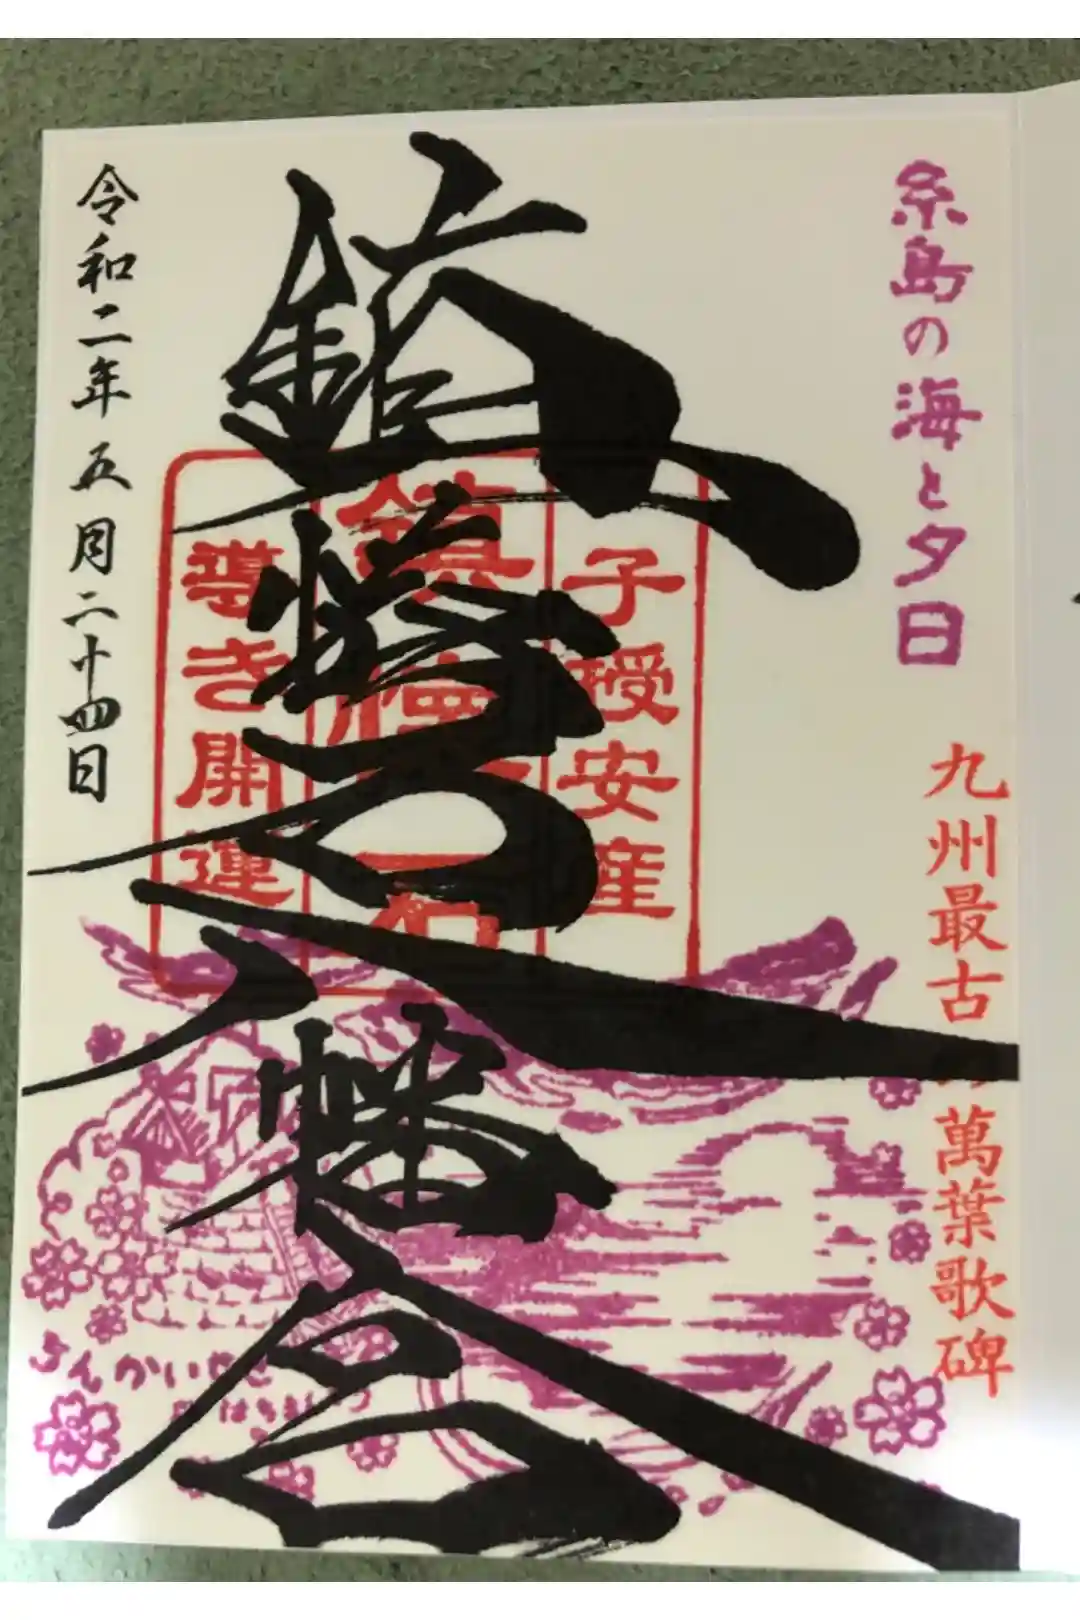 糸島の海と夕日
九州最古の萬葉歌碑
子授安産
鎮懐石
導き開運
鎮懐石八幡宮
令和二年五月二十四日
ちんかいせき